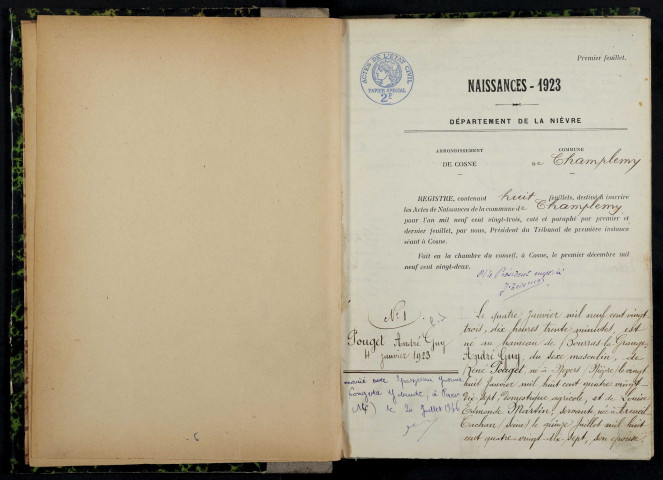 Premier feuillet.
ACTES DE L'ETAT CIVIL
PAPIER SPECIAL
2F
NAISSANCES - 1923
DÉPARTEMENT DE LA NIÈVRE
ARRONDISSEMENT
DE COSNE
COMMUNE
DE Champlemy
REGISTRE, contenant huit feuillets, destiné à inscrire
les Actes de Naissances de la commune de Champlemy
pour l'an mil neuf cent vingt-trois, coté et paraphé par premier et
dernier feuillet, par nous, Président du Tribunal de première instance
séant à Cosne.
Fait en la chambre du conseil, à Cosne, le premier décembre mil
neuf cent vingt-deux.
Président
N° 1
Pouget André Guy
4 janvier 1923
marié avec
à
le 20 juillet 1946
Le quatre janvier mil neuf cent vingt
trois, dix heures trente minutes, est
né au hameau de Bourras-la-Grange,
André Guy, du sexe masculin, de
René Pouget, né à (Nièvre) le vingt
huit janvier mil huit cent quatre vingt-
dix-sept, domestique agricole, et de Louise
Edmonde Martin, servante, née à Arcueil
Cachan (Seine) le quinze juillet mil huit
cent quatre-vingt-dix-sept, son épouse.